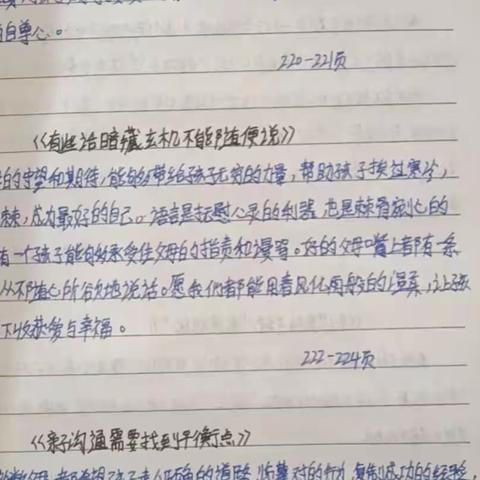 的自尊心。
220-221页
《有些话暗藏玄机不能随便说》
的守望和期待,能够带给孩子无穷的力量,帮助孩子挨过寒冷,
棘,成为最好的自己。语言是抚慰心灵的利器,也是棘背刺心的
有一个孩子能够承受住父母的指责和谩骂。好的父母嘴上都有一条
从不随心所欲地说话。愿我们都能用春风化雨般的温柔,让孩
下收获爱与幸福。
222-224页
《亲子沟通需要找到平衡点》
都希望孩子走正确的道路,临摹对的行为,复制成功的经验,